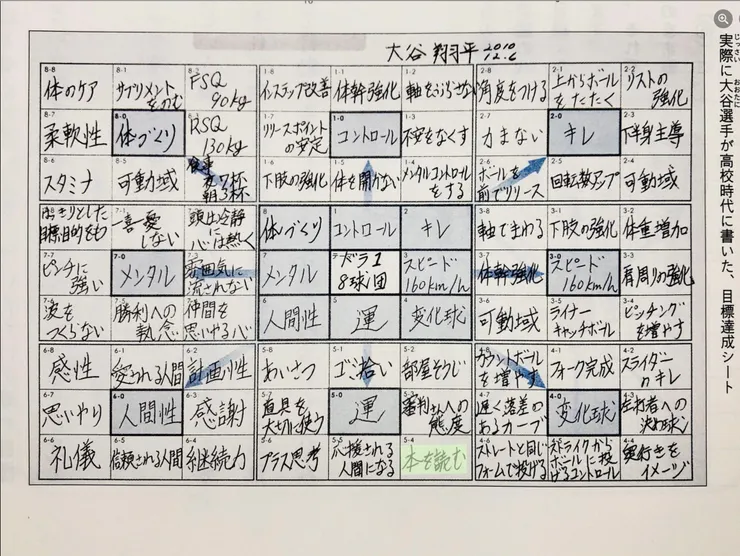 大谷 翔平 2010 12.6
8-8
体のケア
8-1
サプリメント
をのむ
8-2
FSQ
90kg
8-7
柔軟性
8-0
体づくり
RSQ
130kg
8-6
スタミナ
8-5
可動域
食事
夜7杯
朝3杯
1-8
インステップ改善
1-1
体幹強化
1-2
軸をぶらさない
1-7
リリースポイント
の安定
1-0
コントロール
1-3
不安をなくす
1-6
下肢の強化
1-5
体を開かない
1-4
メンタルコントロール
をする
2-8
角度をつける
2-1
上からボール
をたたく
2-2
リストの
強化
2-7
力まない
2-0
キレ
2-3
下半身主導
2-6
ボールを
前でリリース
2-5
回転数アップ
2-4
可動域
はっきりとした
目標、目的をもつ
7-1
一喜一憂
しない
頭は冷静に
心は熱く
7-7
ピンチに
強い
7-0
メンタル
雰囲気に
流されない
7-6
波を
つくらない
7-5
勝利への
執念
7-4
仲間を
思いやる心
8
体づくり
1
コントロール
2
キレ
7
メンタル
ドラ1
8球団
3
スピード
160km/h
6
人間性
5
運
4
変化球
3-8
軸でまわる
3-1
下肢の強化
3-2
体重増加
3-7
体幹強化
3-0
スピード
160km/h
3-3
肩周りの強化
3-6
可動域
3-5
ライナー
キャッチボール
3-4
ピッチング
を増やす
6-8
感性
6-1
愛される人間
6-2
計画性
6-7
思いやり
6-0
人間性
6-3
感謝
6-6
礼儀
6-5
信頼される人間
6-4
継続力
5-8
あいさつ
5-1
ゴミ拾い
5-2
部屋そうじ
5-7
道具を
大切に使う
5-0
運
5-3
審判さんへの
態度
5-6
プラス思考
5-5
応援される
人間になる
5-4
本を読む
4-8
カウントボール
を増やす
4-1
フォーク完成
4-2
スライダー
のキレ
4-7
遅く落差の
あるカーブ
4-0
変化球
4-3
左打者への
決め球
4-6
ストレートと同じ
フォームで投げる
4-5
ストライクから
ボールに投
げるコントロール
4-4
奥行きを
イメージ
実際に大谷選手が高校時代に書いた、目標達成シート